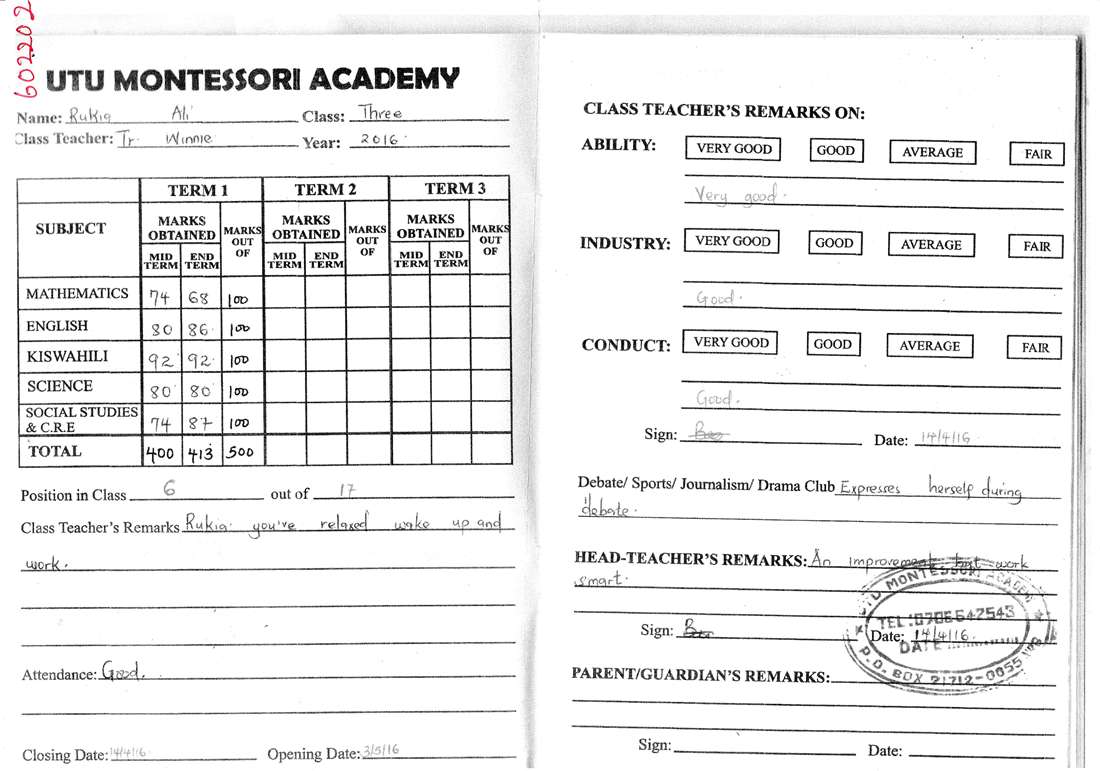 602202
UTU MONTESSORI ACADEMY
Name: Rukia Ali Class: Three
Class Teacher: Tr. Winnie Year: 2016
SUBJECT TERM 1 TERM 2 TERM 3
MARKS OBTAINED MARKS OUT OF MARKS OBTAINED MARKS OUT OF MARKS OBTAINED MARKS OUT OF
MID TERM END TERM MID TERM END TERM MID TERM END TERM
MATHEMATICS 74 68 100
ENGLISH 80 86 100
KISWAHILI 92 92 100
SCIENCE 80 80 100
SOCIAL STUDIES & C.R.E 74 87 100
TOTAL 400 413 500
Position in Class 6 out of 17
Class Teacher's Remarks Rukia you've relaxed wake up and
work.
Attendance: Good.
Closing Date: 14/4/16 Opening Date: 3/5/16
CLASS TEACHER'S REMARKS ON:
ABILITY: VERY GOOD GOOD AVERAGE FAIR
Very good.
INDUSTRY: VERY GOOD GOOD AVERAGE FAIR
Good.
CONDUCT: VERY GOOD GOOD AVERAGE FAIR
Good.
Sign: Date: 14/4/16
Debate/ Sports/ Journalism/ Drama Club Expresses herself during
debate.
HEAD-TEACHER'S REMARKS: An improvement but work
smart.
Sign: Date: 14/4/16
UTU MONTESSORI ACADEMY
TEL: 0706647543
DATE
P.O. BOX 71712-0055
PARENT/GUARDIAN'S REMARKS:
Sign: Date: